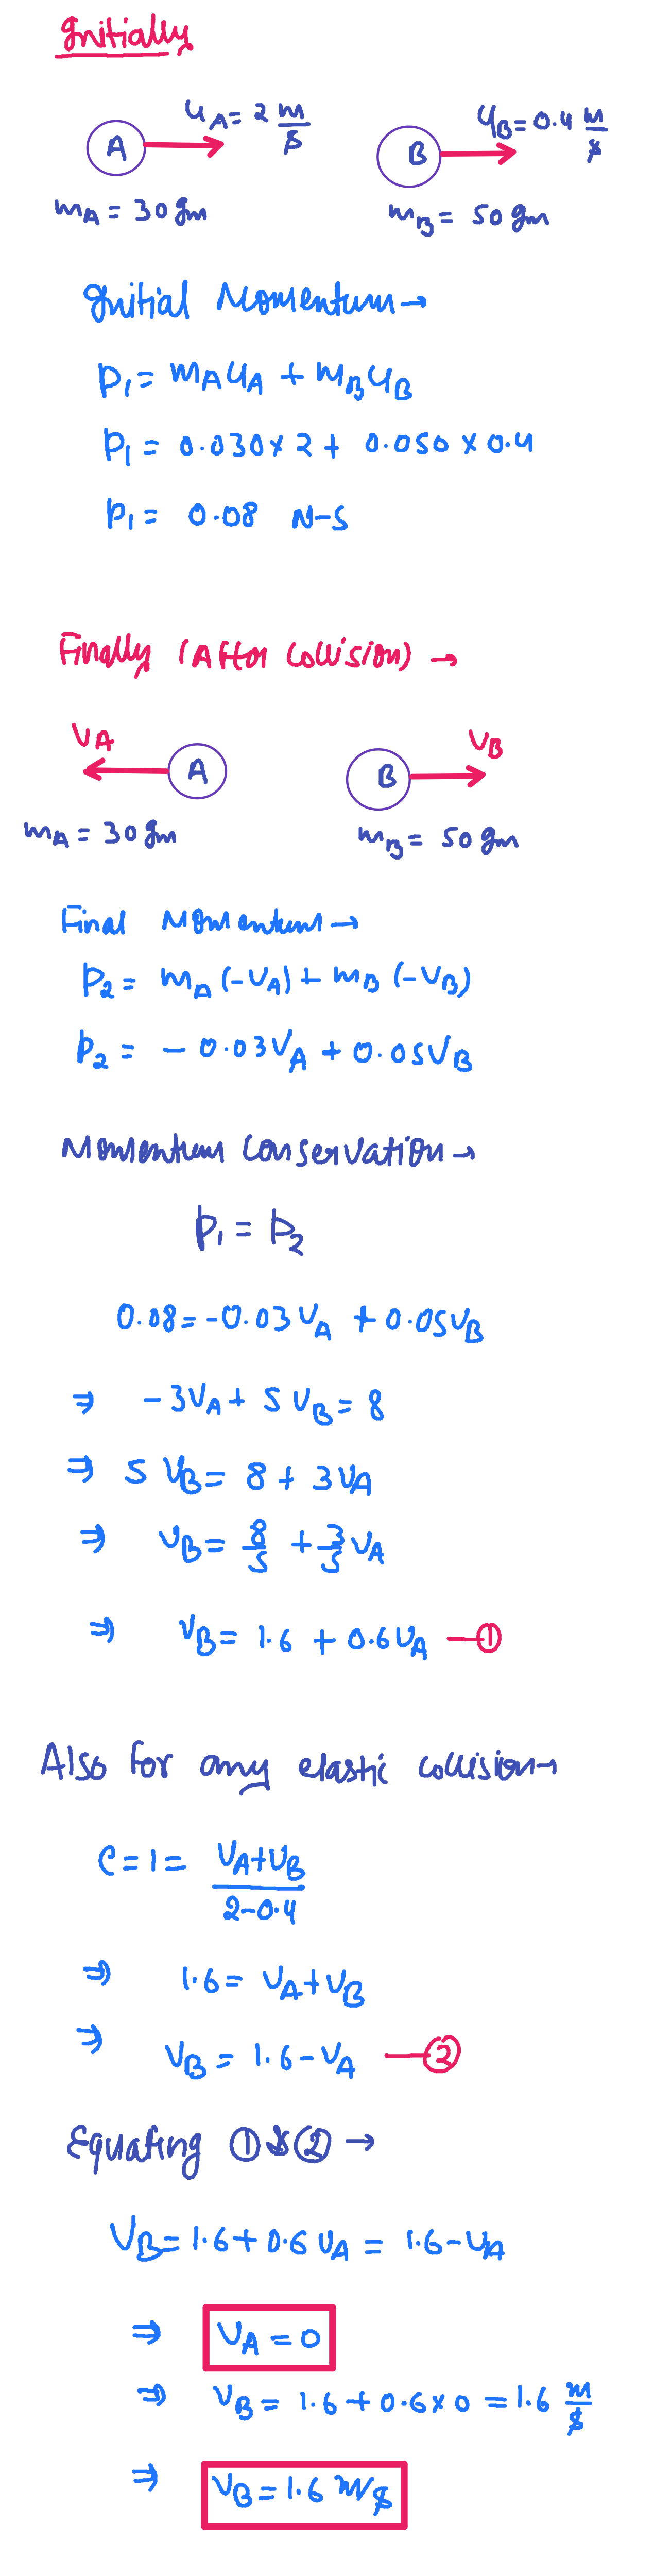 Initially
u_A = 2 m/s
u_B = 0.4 m/s
A
B
m_A = 30 gm
m_B = 50 gm
Initial Momentum →
p₁ = m_A u_A + m_B u_B
p₁ = 0.030 × 2 + 0.050 × 0.4
p₁ = 0.08 N-S
Finally (After Collision) →
V_A
V_B
A
B
m_A = 30 gm
m_B = 50 gm
Final Momentum →
p₂ = m_A (-V_A) + m_B (-V_B)
p₂ = - 0.03 V_A + 0.05 V_B
Momentum Conservation →
p₁ = p₂
0.08 = -0.03 V_A + 0.05 V_B
⇒ -3V_A + 5 V_B = 8
⇒ 5 V_B = 8 + 3 V_A
⇒ V_B = 8/5 + 3/5 V_A
⇒ V_B = 1.6 + 0.6 V_A —①
Also for any elastic collision →
e = 1 = (V_A + V_B)/(2-0.4)
⇒ 1.6 = V_A + V_B
⇒ V_B = 1.6 - V_A —②
Equating ① & ② →
V_B = 1.6 + 0.6 V_A = 1.6 - V_A
⇒ V_A = 0
⇒ V_B = 1.6 + 0.6 × 0 = 1.6 m/s
⇒ V_B = 1.6 m/s